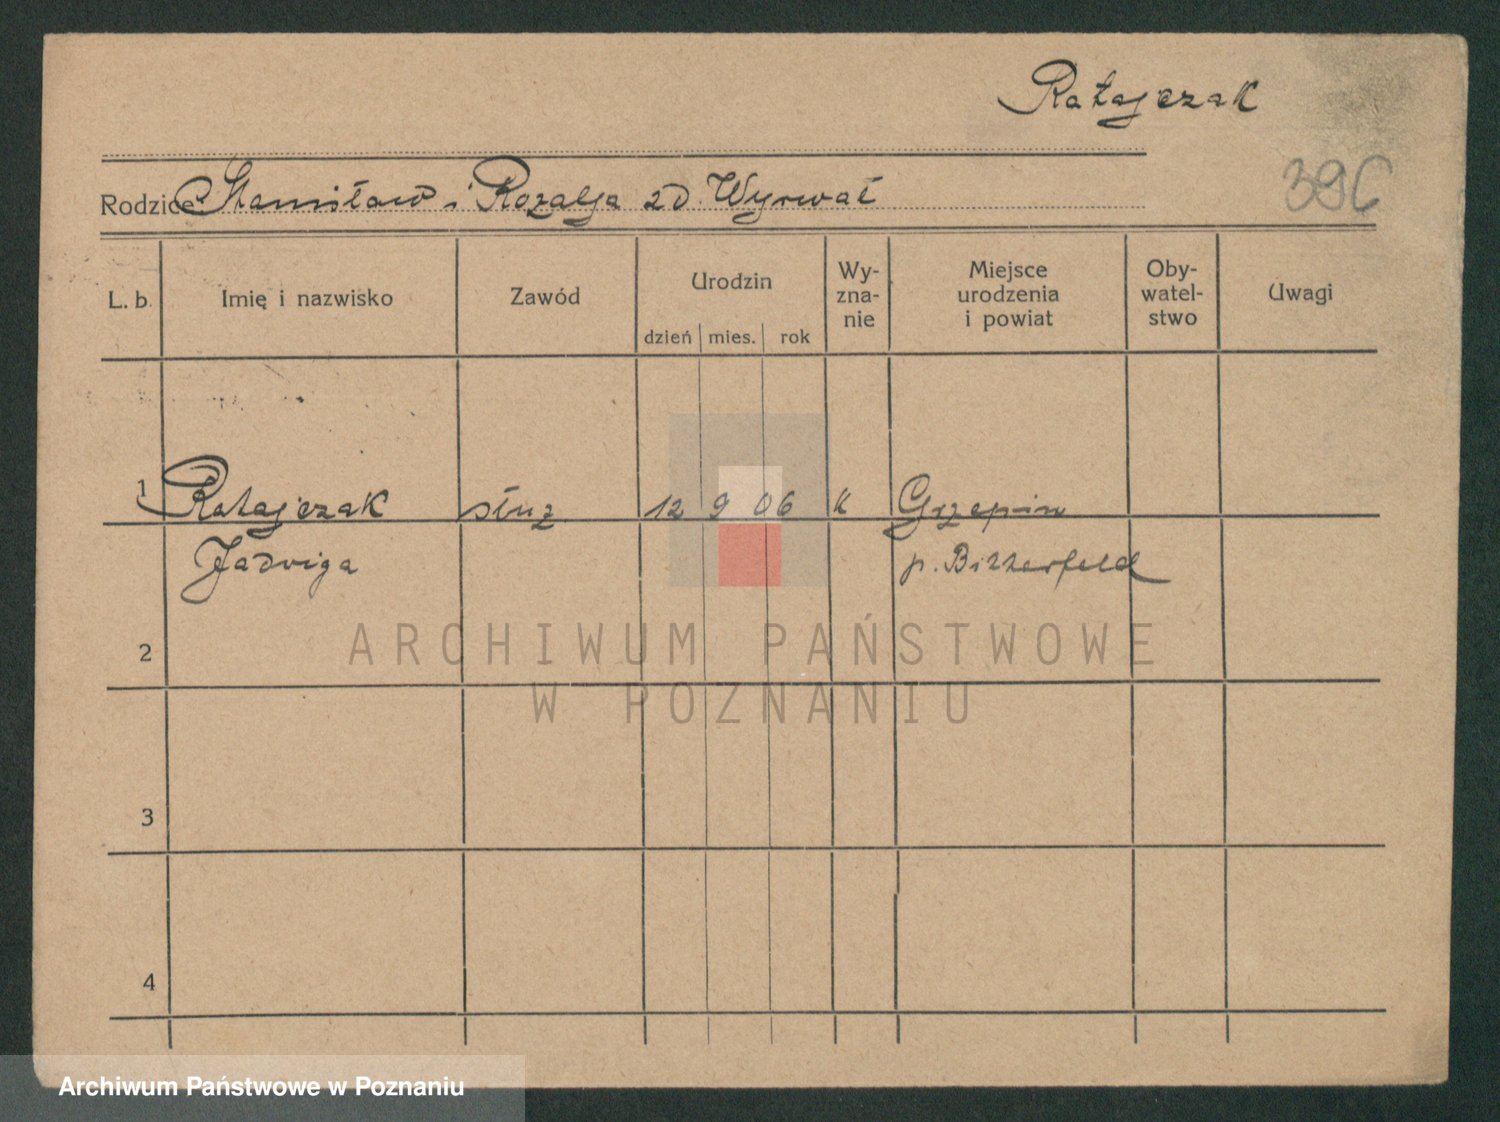 Ratajczak
Rodzice Stanisław i Rozalja zd. Wyrwał
39C
L. b. Imię i nazwisko Zawód Urodzin dzień mies. rok Wy-zna-nie Miejsce urodzenia i powiat Oby-watel-stwo Uwagi
1 Ratajczak służ 12 9 06 k Grzepin
Jadwiga p. Bitterfeld
2
ARCHIWUM PAŃSTWOWE
W POZNANIU
3
4
Archiwum Państwowe w Poznaniu